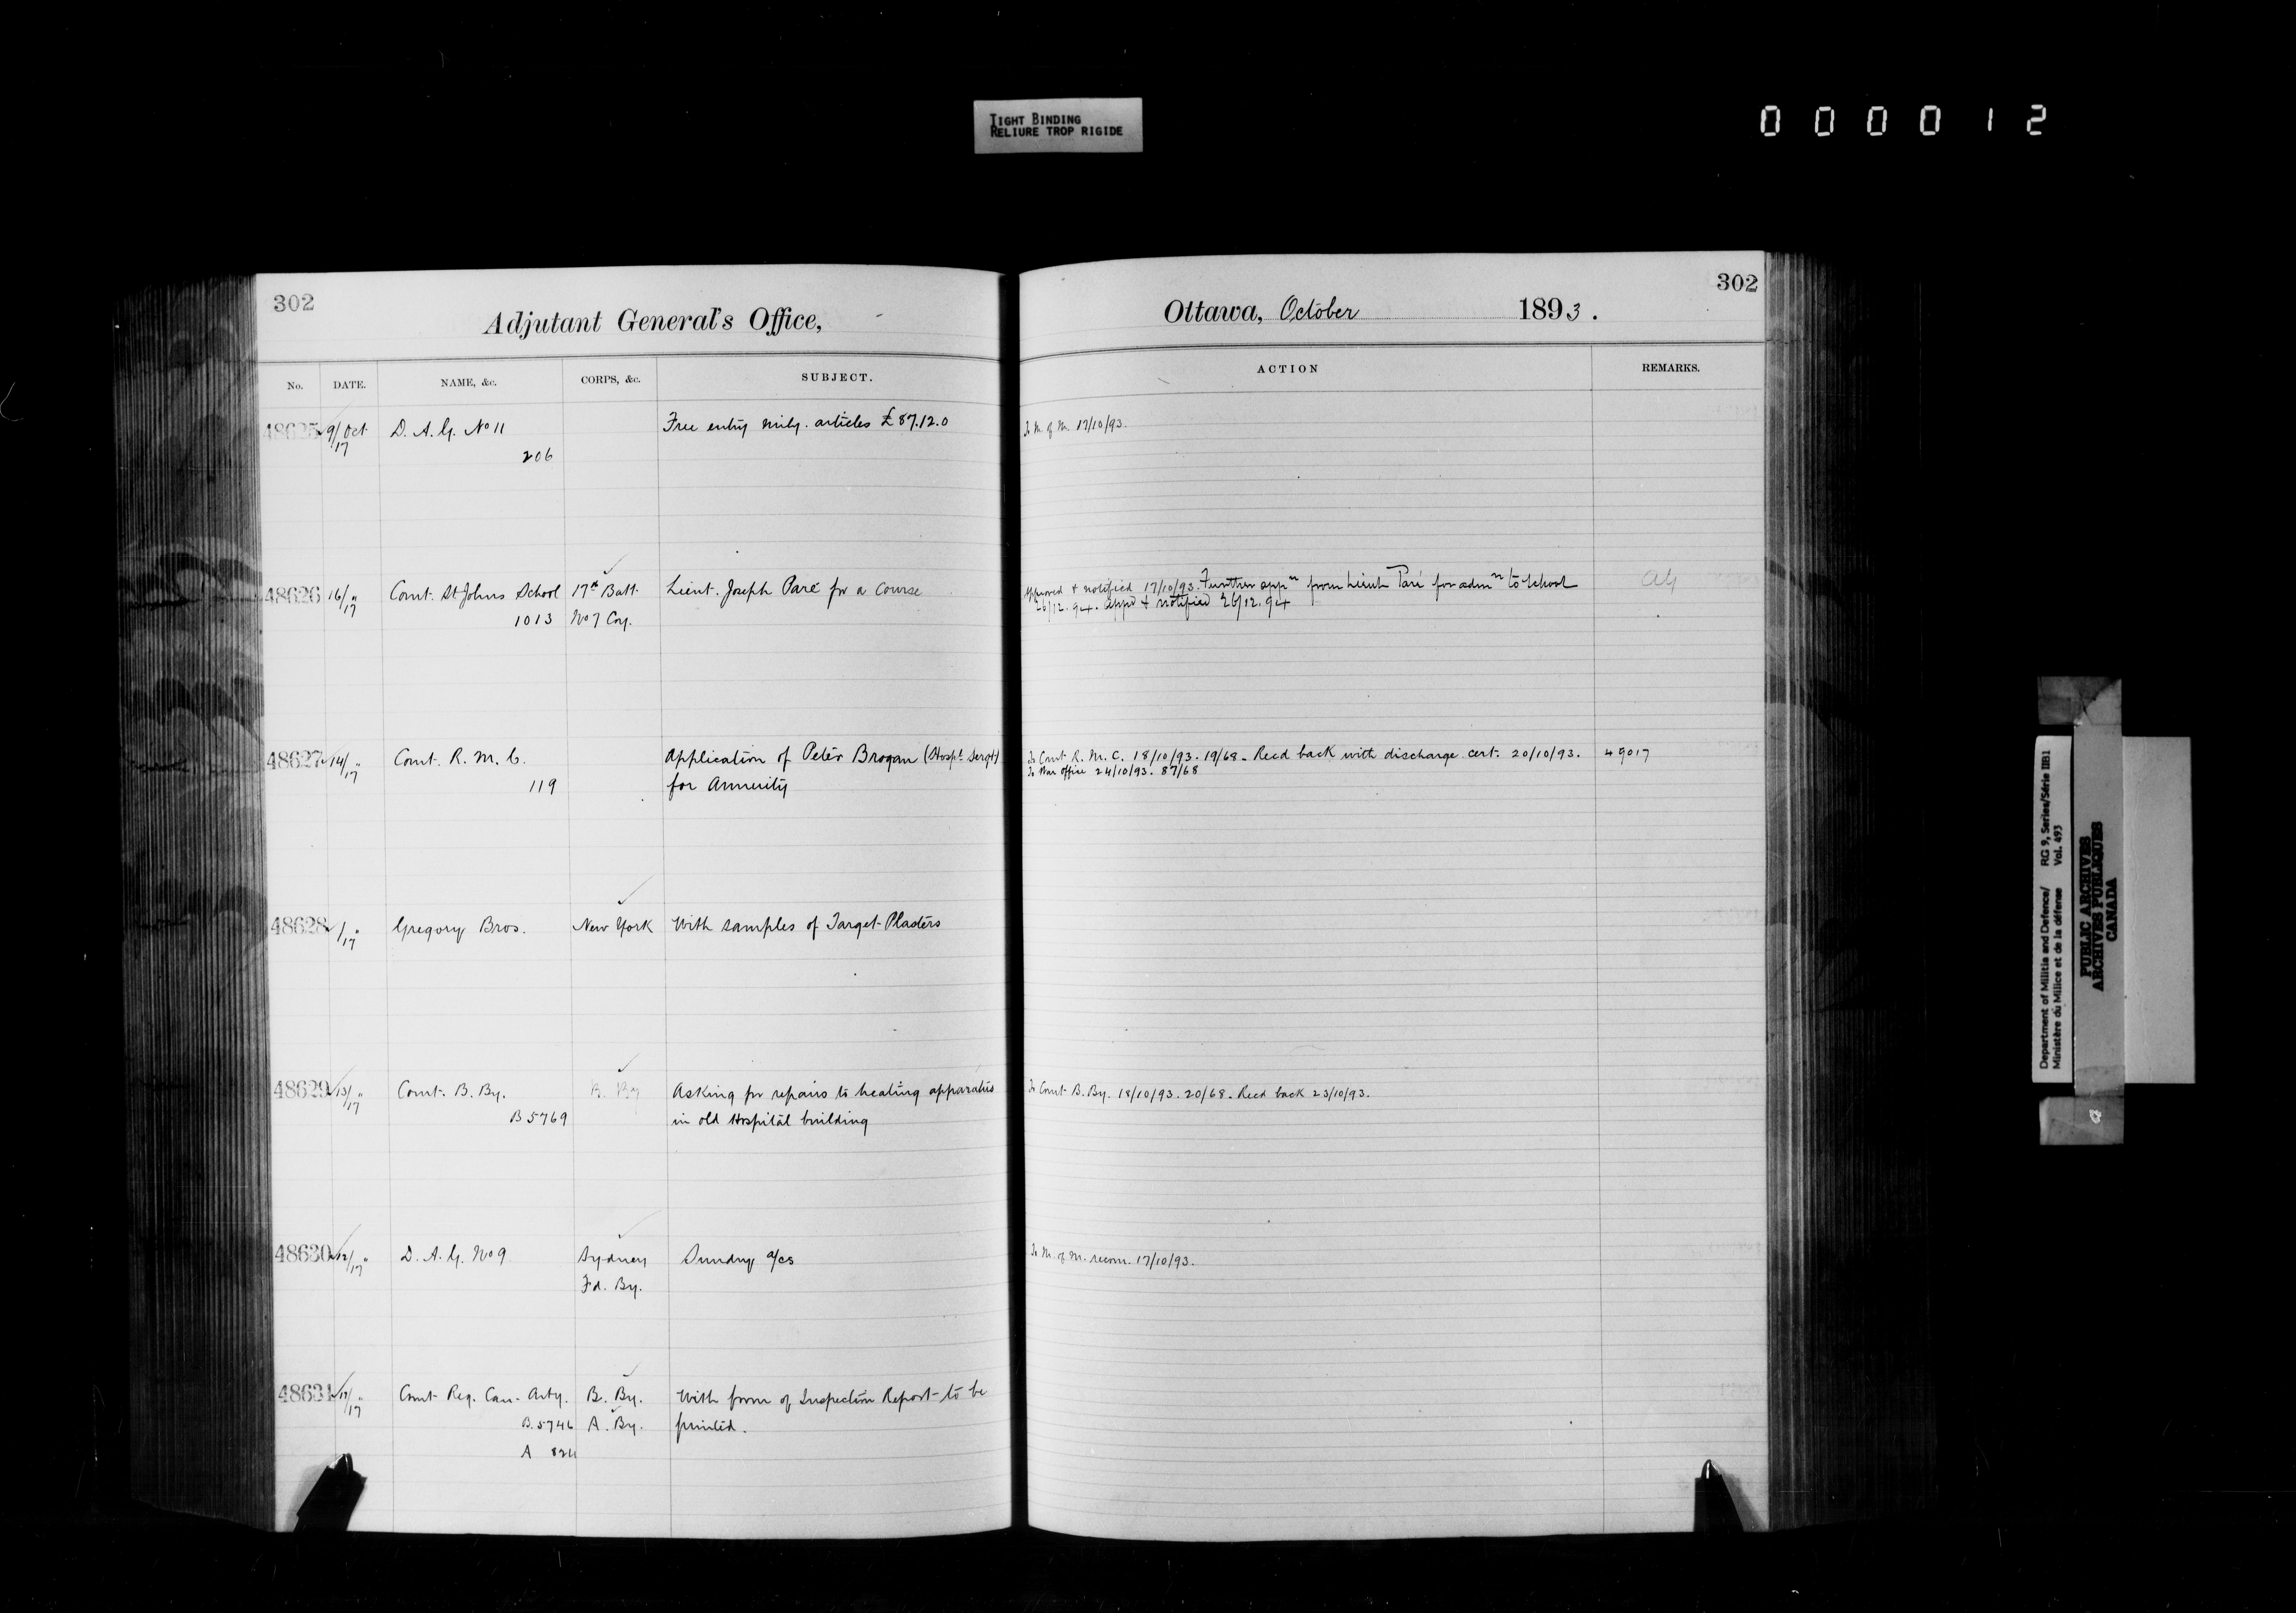 TIGHT BINDING
RELIURE TROP RIGIDE
000012
302
Adjutant General's Office,
No. DATE. NAME, &c. CORPS, &c. SUBJECT.
48625 9/17 Oct D. A. G. No 11 Free entry mily. articles £87.12.0
206
48626 16/17 " Comt. St Johns School 17th Batt. Lieut. Joseph Paré for a Course
1013 No 7 Coy.
48627 14/17 " Comt. R. M. C. Application of Peter Brogan (Hospl. Sergt)
119 for Annuity
48628 /17 " Gregory Bros. New York With samples of Target-Plasters
48629 13/17 " Comt. B. By. B. By Asking for repairs to heating apparatus
B 5769 in old Hospital building
48630 12/17 " D. A. G. No 9 Sydney Sundry a/cs
Fd. By.
48631 17/17 " Comt Reg. Can. Arty. B. By. With form of Inspection Report to be
B. 5746 A. By. printed.
A 824
302
Ottawa, October 1893.
ACTION REMARKS.
To M. of M. 17/10/93.
Approved + notified 17/10/93. Further appn from Lieut Paré for admn to school AG
26/12.94. appd + notified 26/12.94
To Comt R. M. C. 18/10/93. 19/68. Recd back with discharge cert. 20/10/93. 49017
To War Office 24/10/93. 87/68
To Comt B. By. 18/10/93. 20/68. Recd back 23/10/93.
To M. of M. recom. 17/10/93.
Department of Militia and Defence/ RG 9, Series/Série IIB1
Ministère du Milice et de la défense Vol. 493
PUBLIC ARCHIVES
ARCHIVES PUBLIQUES
CANADA